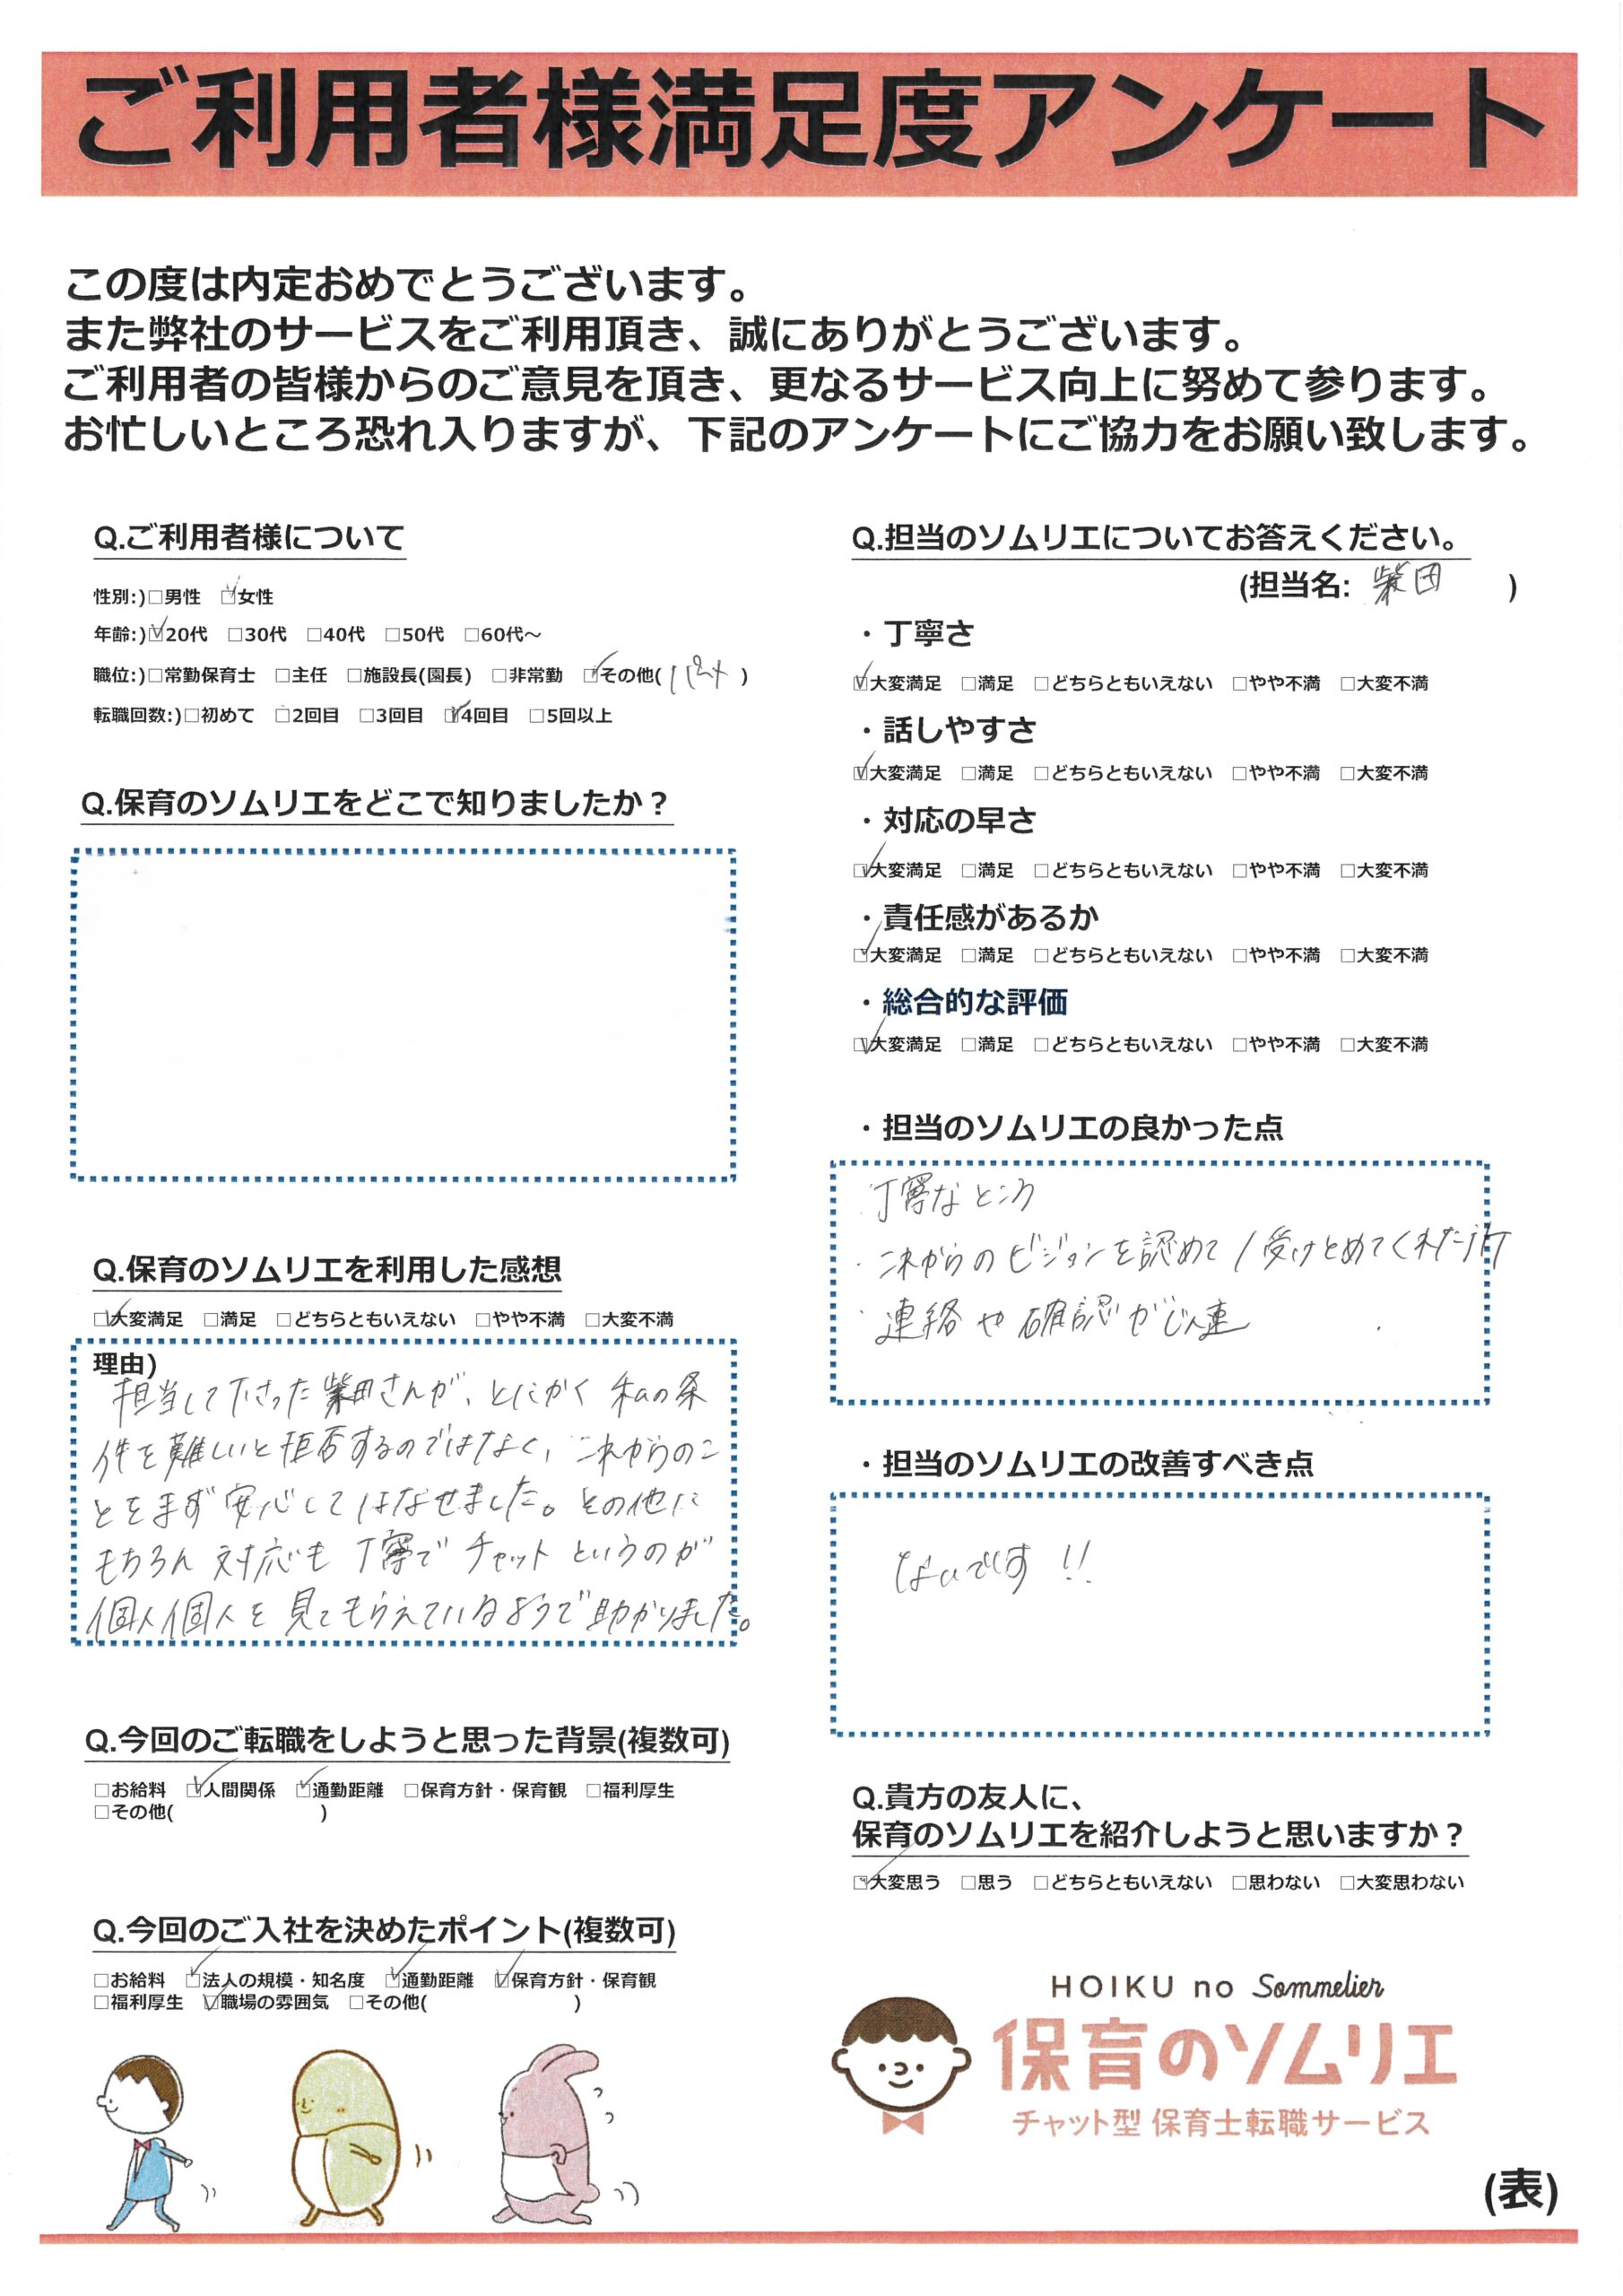 ご利用者様満足度アンケート
この度は内定おめでとうございます。
また弊社のサービスをご利用頂き、誠にありがとうございます。
ご利用者の皆様からのご意見を頂き、更なるサービス向上に努めて参ります。
お忙しいところ恐れ入りますが、下記のアンケートにご協力をお願い致します。
Q.ご利用者様について
性別:)□男性 ☑女性
年齢:)☑20代 □30代 □40代 □50代 □60代～
職位:)□常勤保育士 □主任 □施設長(園長) □非常勤 ☑その他(パート)
転職回数:)□初めて □2回目 □3回目 ☑4回目 □5回以上
Q.保育のソムリエをどこで知りましたか？
Q.保育のソムリエを利用した感想
☑大変満足 □満足 □どちらともいえない □やや不満 □大変不満
理由)
担当して下さった柴田さんが、とにかく私の条
件を難しいと拒否するのではなく、これからのこ
とをまず安心してはなせました。その他に
もちろん対応も丁寧でチャットというのが
個人個人を見てもらえているようで助かりました。
Q.今回のご転職をしようと思った背景(複数可)
□お給料 ☑人間関係 ☑通勤距離 □保育方針・保育観 □福利厚生
□その他( )
Q.今回のご入社を決めたポイント(複数可)
□お給料 ☑法人の規模・知名度 ☑通勤距離 ☑保育方針・保育観
□福利厚生 ☑職場の雰囲気 □その他( )
Q.担当のソムリエについてお答えください。
(担当名: 柴田 )
・丁寧さ
☑大変満足 □満足 □どちらともいえない □やや不満 □大変不満
・話しやすさ
☑大変満足 □満足 □どちらともいえない □やや不満 □大変不満
・対応の早さ
☑大変満足 □満足 □どちらともいえない □やや不満 □大変不満
・責任感があるか
☑大変満足 □満足 □どちらともいえない □やや不満 □大変不満
・総合的な評価
☑大変満足 □満足 □どちらともいえない □やや不満 □大変不満
・担当のソムリエの良かった点
・丁寧なところ
・これからのビジョンを認めて/受けとめてくれた所
・連絡や確認がじん速
・担当のソムリエの改善すべき点
ないです!!
Q.貴方の友人に、
保育のソムリエを紹介しようと思いますか？
☑大変思う □思う □どちらともいえない □思わない □大変思わない
HOIKU no Sommelier
保育のソムリエ
チャット型 保育士転職サービス
(表)